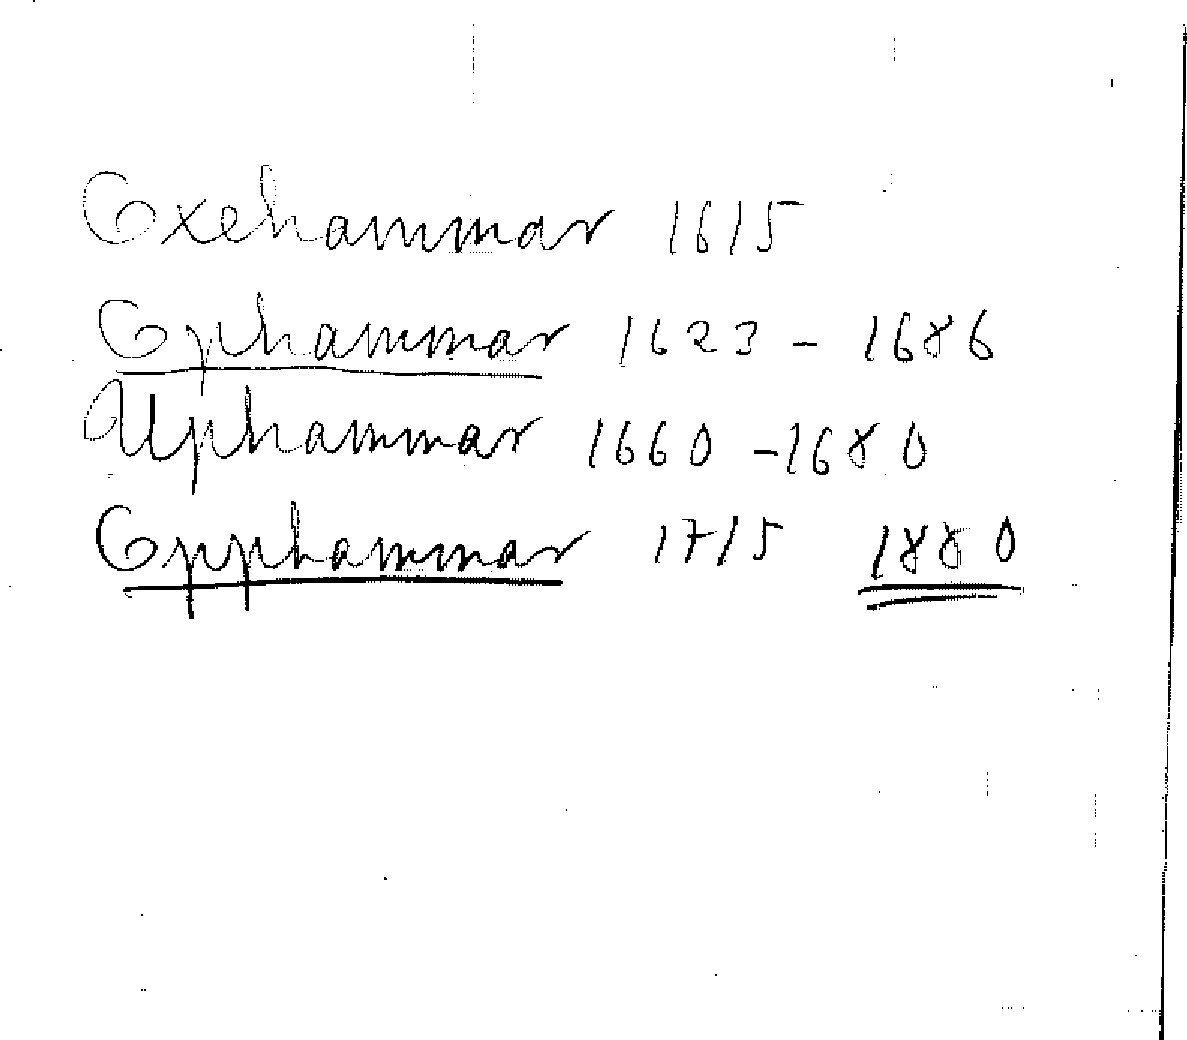 Oxehammar 1615
Ophammar 1623 - 1686
Uphammar 1660 - 1680
Opphammar 1715 1880